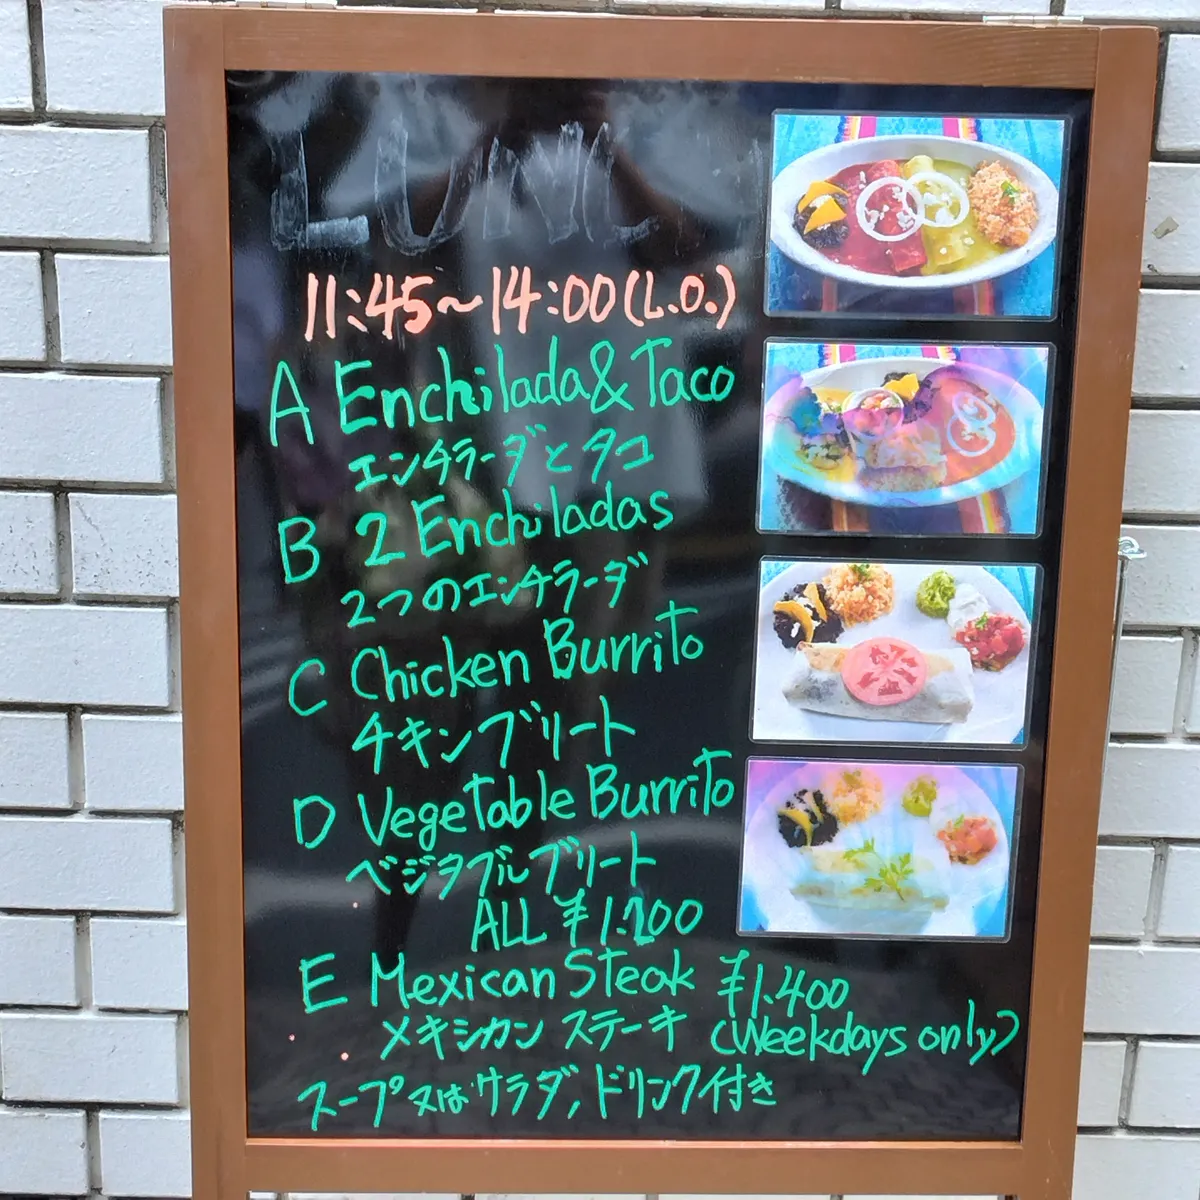 LUNC
11:45〜14:00(L.O.)
A Enchilada&Taco
エンチラーダとタコ
B 2 Enchiladas
2つのエンチラーダ
C Chicken Burrito
チキンブリート
D Vegetable Burrito
ベジタブルブリート
ALL ¥1.200
E Mexican Steak ¥1.400
メキシカン ステーキ (Weekdays only)
スープ又はサラダ,ドリンク付き